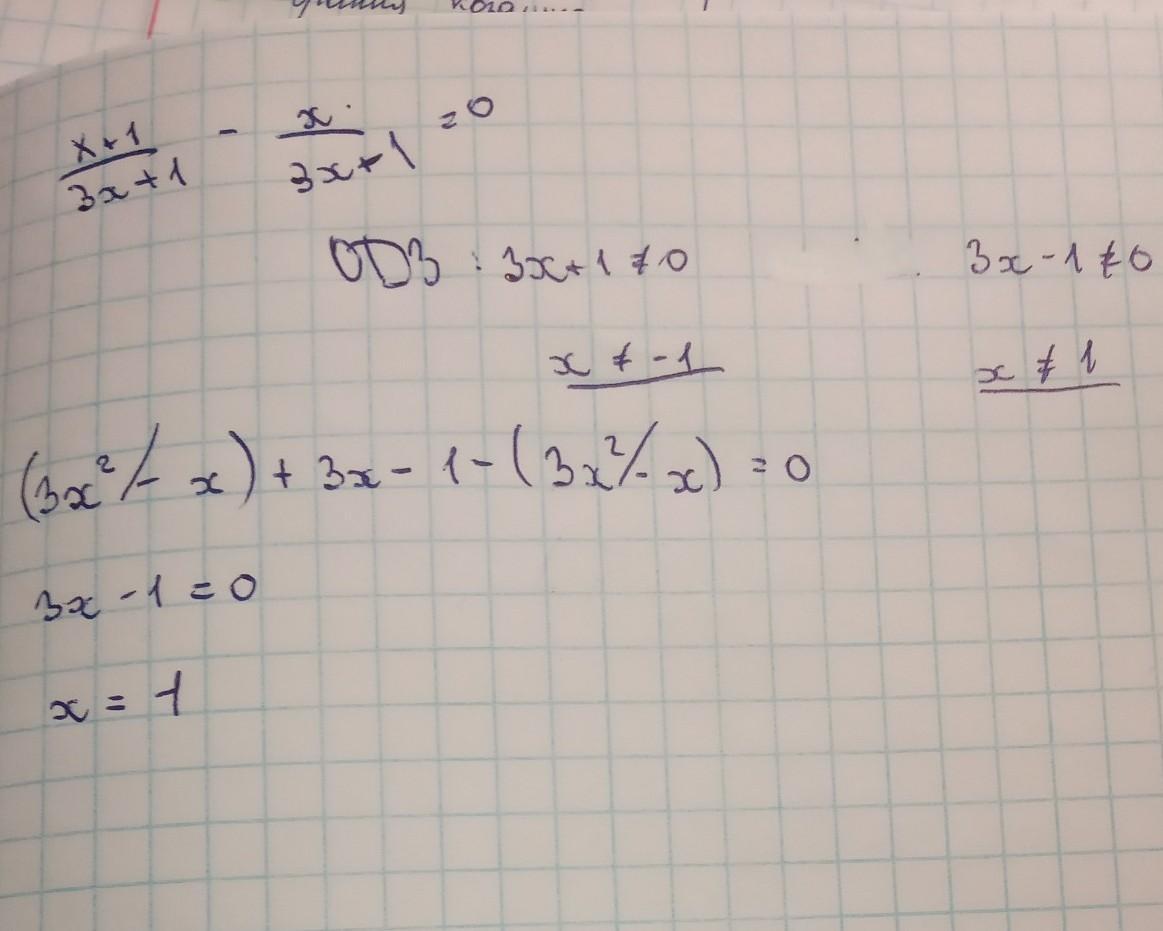 x+1/3x+1 - x/3x+1 = 0
ОДЗ : 3x+1 ≠ 0 3x-1 ≠ 0
x ≠ -1 x ≠ 1
(3x² - x) + 3x - 1 - (3x² - x) = 0
3x - 1 = 0
x = -1